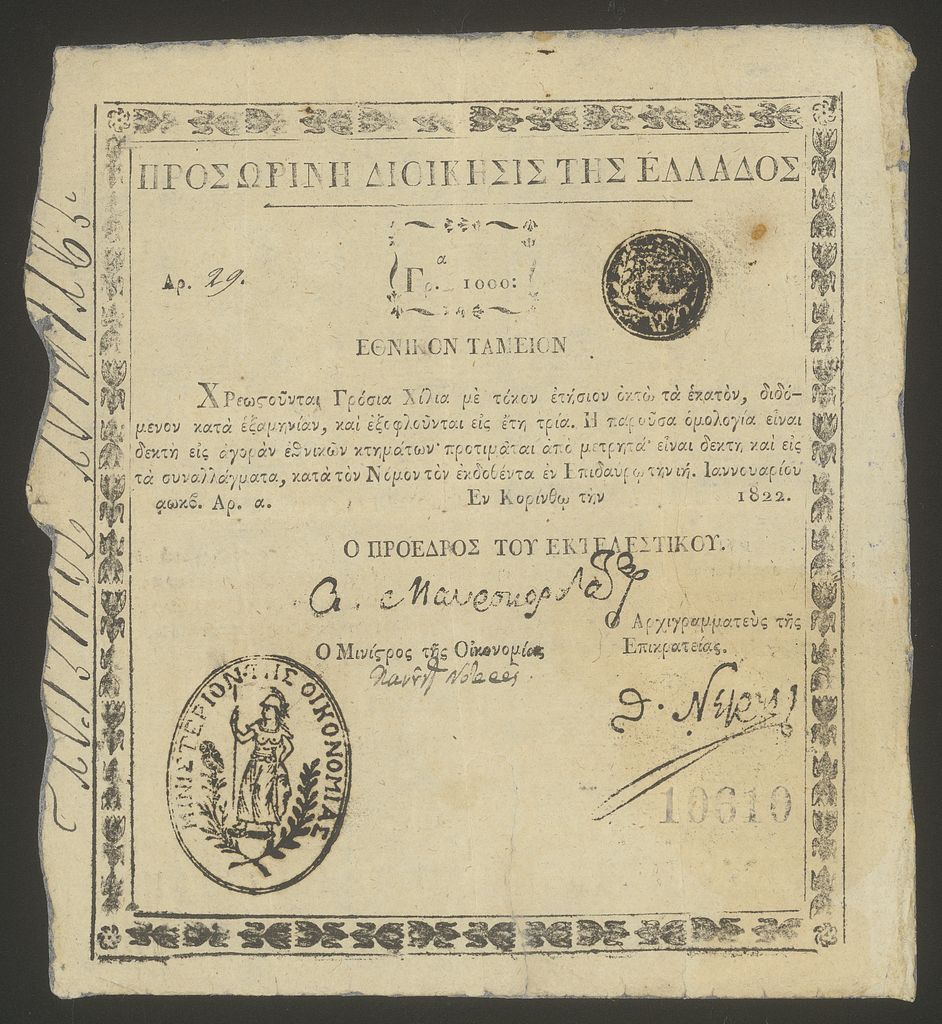 ΠΡΟΣΩΡΙΝΗ ΔΙΟΙΚΗΣΙΣ ΤΗΣ ΕΛΛΑΔΟΣ
Αρ. 29.
α
Γρ. 1000:
ΕΘΝΙΚΟΝ ΤΑΜΕΙΟΝ
Χρεωϛοῦνται Γρόσια Χίλια μὲ τόκον ἐτήσιον ὀκτὼ τὰ ἑκατὸν, διδό-
μενον κατὰ ἑξαμηνίαν, καὶ ἐξοφλοῦνται εἰς ἔτη τρία. Η παροῦσα ὁμολογία εἶναι
δεκτὴ εἰς ἀγορὰν ἐθνικῶν κτημάτων· προτιμᾶται ἀπὸ μετρητά· εἶναι δεκτὴ καὶ εἰς
τὰ συναλλάγματα, κατὰ τὸν Νόμον τὸν ἐκδοθέντα ἐν Επιδαύρῳ τὴν ιή. Ιαννουαρίου
αωκβ. Αρ. α. Εν Κορίνθῳ τὴν 1822.
Ο ΠΡΟΕΔΡΟΣ ΤΟΥ ΕΚΤΕΛΕΣΤΙΚΟΥ.
Α. Μαυροκορδάτος
Αρχιγραμματεὺς τῆς
Επικρατείας.
Ο Μινίϛρος τῆς Οἰκονομίας
Θ. Νέγρης
ΜΙΝΙΣΤΕΡΙΟΝ ΤΗΣ ΟΙΚΟΝΟΜΙΑΣ
10610